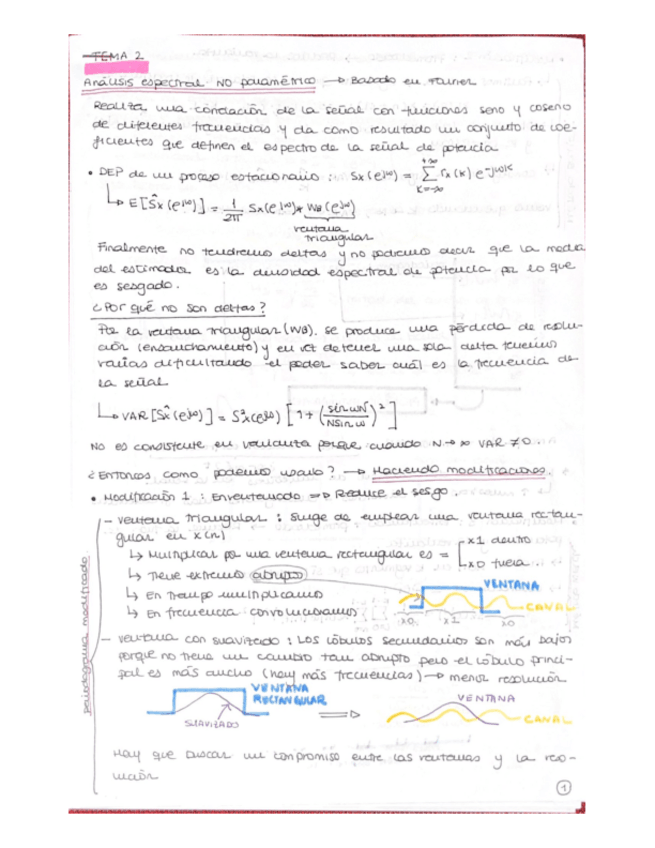 TEMA 2
Análisis espectral NO paramétrico → Basado en Fourier
Realiza una correlación de la señal con funciones seno y coseno
de diferentes frecuencias y da como resultado un conjunto de coe-
ficientes que definen el espectro de la señal de potencia
• DEP de un proceso estacionario : Sx(e^jω) = Σ_{k=-∞}^{+∞} rx(k) e^-jωk
↳ E[Ŝx(e^jω)] = 1/2π Sx(e^jω) * WB(e^jω)
ventana
triangular
Finalmente no tendremos deltas y no podremos decir que la media
del estimador es la densidad espectral de potencia por lo que
es sesgado.
¿Por qué no son deltas?
Por la ventana triangular (WB). se produce una pérdida de resolu-
ción (ensanchamiento) y en vez de tener una sola delta tenemos
varias dificultando el poder saber cuál es la frecuencia de
la señal
↳ VAR[Ŝx(e^jω)] = S²x(e^jω) [1 + (sin ωN / N sin ω)²]
No es consistente en varianza porque cuando N→∞ VAR ≠ 0.
¿Entonces como podemos usarlo? → Haciendo modificaciones.
• Modificación 1 : Enventanado ⇒ Reduce el sesgo.
periodograma modificado
- ventana triangular : Surge de emplear una ventana rectan-
gular en x(n)
↳ Multiplicar por una ventana rectangular es = [x1 dentro
x0 fuera
↳ Tiene extremos abruptos
↳ En tiempo multiplicamos
↳ En frecuencia convolucionamos
VENTANA
CANAL
x0 x1 x0
- ventana con suavizado : Los lóbulos secundarios son más bajos
porque no tiene un cambio tan abrupto pero el lóbulo princi-
pal es más ancho (hay más frecuencias) → menor resolución
VENTANA
RECTANGULAR
SUAVIZADO
⇒
VENTANA
CANAL
Hay que buscar un compromiso entre las ventanas y la reso-
lución
1